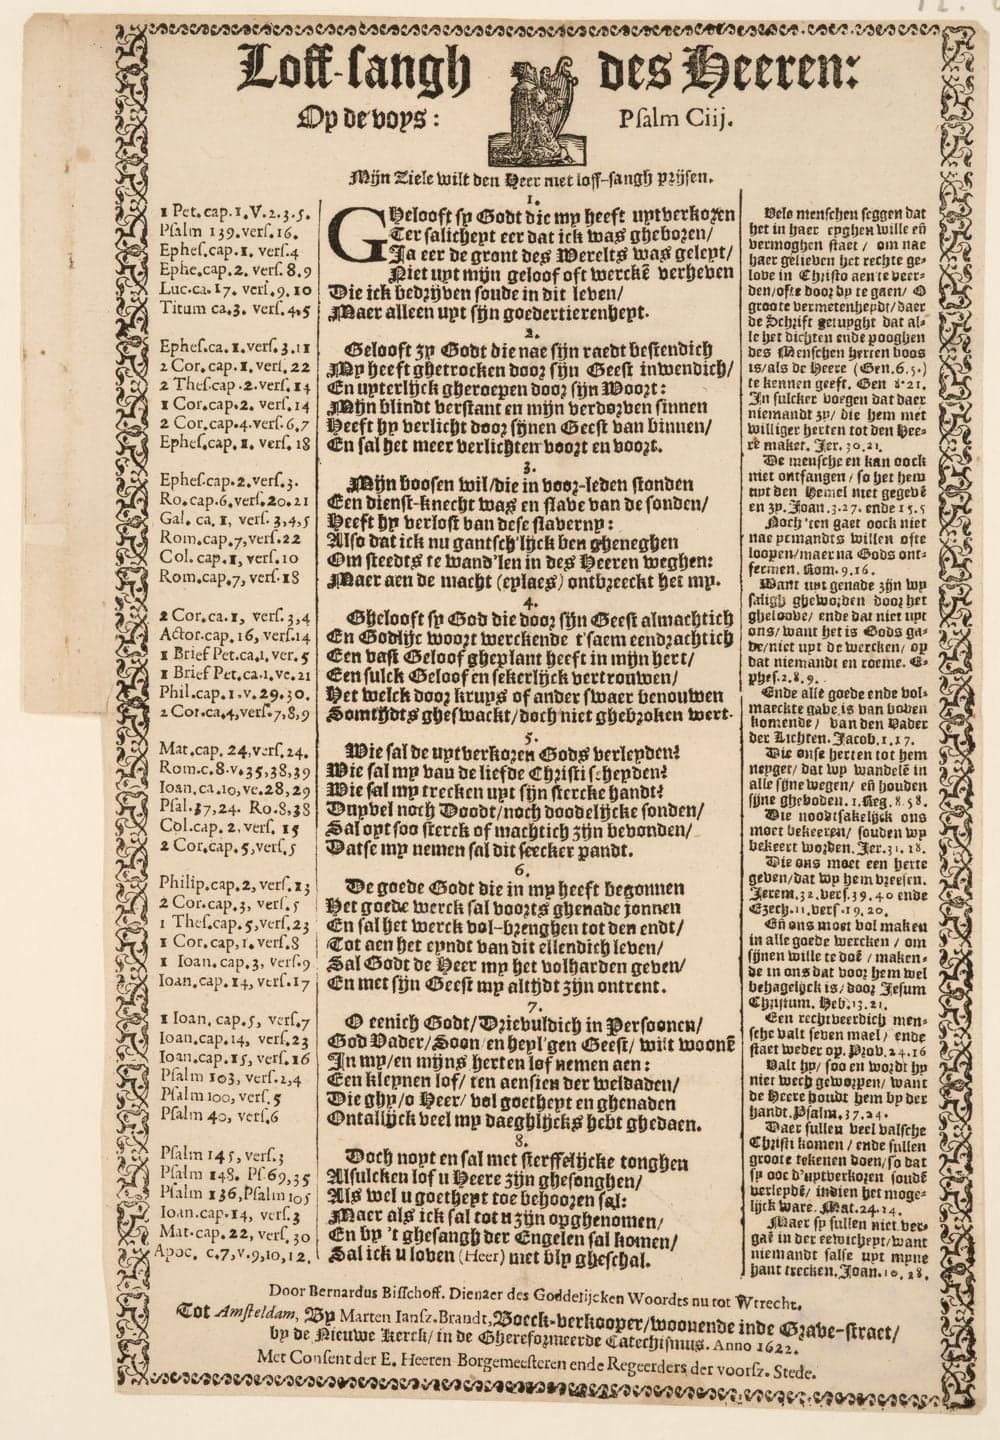 Loff-sangh des Heeren:
Op de voys: Psalm Ciij.
Mijn Ziele wilt den Heer met loff-sangh prijsen.
1 Pet.cap.1.V.2.3.5.
Psalm 139.vers.16.
Ephes.cap.1. vers.4
Ephe.cap.2. vers.8.9
Luc.ca.17. vers.9.10
Titum ca.3. vers.4.5
Ephes.ca.1.vers.3.11
2 Cor.cap.1.vers.22
2 Thes.cap.2.vers.14
1 Cor.cap.2. vers.14
2 Cor.cap.4.vers.6.7
Ephes.cap.1. vers.18
Ephes.cap.2.vers.3.
Ro.cap.6.vers.20.21
Gal. ca.1, vers.3,4,5
Rom.cap.7,vers.22
Col. cap.1,vers.10
Rom.cap.7, vers.18
2 Cor.ca.1, vers.3,4
Actor.cap.16, vers.14
1 Brief Pet.ca.1, ver.5
1 Brief Pet.ca.1.ve.21
Phil.cap.1.v.29.30.
2 Cor.ca.4,vers.7,8,9
Mat.cap. 24,vers.24.
Rom.c.8.v.35,38,39
Ioan.ca.10,ve.28,29
Psal.37,24. Ro.8,38
Col.cap.2,vers.15
2 Cor.cap.5,vers.5
Philip.cap.2,vers.13
2 Cor.cap.3, vers.5
1 Thes.cap.5,vers.23
1 Cor.cap,1.vers.8
1 Ioan.cap.3, vers.9
Ioan.cap.14, vers.17
1 Ioan. cap.5, vers.7
Ioan.cap.14, vers.23
Ioan.cap.15, vers.16
Psalm 103, vers.2,4
Psalm 100, vers.5
Psalm 40, vers.6
Psalm 145, vers.3
Psalm 148. Ps.69,35
Psalm 136,Psalm 105
Ioan.cap.14, vers.3
Mat.cap.22, vers.30
Apoc. c.7,v.9,10,12.
1.
GHelooft sy Godt die my heeft uytverkoren
Ter salicheyt eer dat ick was gheboren/
Ja eer de gront des Werelts was geleyt/
Niet uyt mijn geloof oft werckē verheven
Die ick bedrijven soude in dit leven/
Maer alleen uyt sijn goedertierenheyt.
2.
Gelooft zy Godt die nae sijn raedt bestendich
My heeft ghetrocken door sijn Geest inwendich/
En uyterlijck gheroepen door sijn Woort:
Mijn blindt verstant en mijn verdorven sinnen
Heeft hy verlicht door sijnen Geest van binnen/
En sal het meer verlichten voort en voort.
3.
Mijn boosen wil/die in voor-leden stonden
Een dienst-knecht was en slave van de sonden/
Heeft hy verlost van dese slaverny:
Also dat ick nu gantsch'lijck ben gheneghen
Om steedts te wand'len in des Heeren weghen:
Maer aen de macht (eylaes) ontbreeckt het my.
4.
Ghelooft sy God die door sijn Geest almachtich
En Godlijc woort werckende t'saem eendrachtich
Een vast Geloof gheplant heeft in mijn hert/
Een sulck Geloof en sekerlijck vertrouwen/
Het welck door kruys of ander swaer benouwen
Somtijdts gheswackt/doch niet ghebroken wert.
5.
Wie sal de uytverkoren Gods verleyden?
Wie sal my van de liefde Christi scheyden?
Wie sal my trecken uyt sijn stercke handt?
Duyvel noch Doodt/noch doodelijcke sonden/
Sal oyt soo sterck of machtich zijn bevonden/
Datse my nemen sal dit seecker pandt.
6.
De goede Godt die in my heeft begonnen
Het goede werck sal voorts ghenade jonnen
En sal het werck vol-brenghen tot den endt/
Tot aen het eyndt van dit ellendich leven/
Sal Godt de Heer my het volharden geven/
En met sijn Geest my altijdt zijn ontrent.
7.
O eenich Godt/Drievuldich in Persoonen/
God Vader/Soon/en heyl'gen Geest/ wilt woonē
In my/en mijns herten lof nemen aen:
Een kleynen lof/ ten aensien der weldaden/
Die ghy/o Heer/ vol goetheyt en ghenaden
Ontallijck veel my daeghlijcks hebt ghedaen.
8.
Doch noyt en sal met sterffelijcke tonghen
Alsulcken lof u Heere zijn ghesonghen/
Als wel u goetheyt toe behooren sal:
Maer als ick sal tot u zijn opghenomen/
En by 't ghesangh der Engelen sal komen/
Sal ick u loven (Heer) met bly gheschal.
Vele menschen seggen dat
het in haer eyghen wille eñ
vermoghen staet / om nae
haer gelieven het rechte ge-
love in Christo aen te veer-
den/ofte door dy te gaen/ O
groote vermetenheydt/daer
de Schrift getuyght dat al-
le het dichten ende pooghen
des Menschen herten boos
is/als de Heere (Gen.6.5.)
te kennen geeft. Gen 8.21.
In sulcker voegen dat daer
niemandt zy/ die hem met
williger herten tot den Hee-
re maket. Jer.30.21.
De mensche en kan oock
niet ontfangen/ so het hem
uyt den Hemel niet gegevē
en zy. Joan.3.27. ende 15.5
Noch'ten gaet oock niet
nae yemandts willen ofte
loopen/maer na Gods ont-
fermen. Rom.9.16.
Want uyt genade zijn wy
saligh gheworden door het
gheloove/ ende dat niet uyt
ons/want het is Gods ga-
ve/niet uyt de wercken/ op
dat niemandt en roeme. E-
phes.2.8.9.
Ende alle goede ende vol-
maeckte gave is van boven
komende/ van den Vader
der Lichten. Jacob.1.17.
Die onse herten tot hem
neyget/ dat wy wandelē in
alle sijne wegen/ eñ houden
sijne gheboden. 1.Reg.8.58.
Die noodtsakelijck ons
moet bekeeren/ souden wy
bekeert worden. Jer.31.18.
Die ons moet een herte
geven/dat wy hem vreesen.
Jerem.32.vers.39.40 ende
Ezech.11.vers.19,20.
Eñ ons moet vol maken
in alle goede wercken / om
sijnen wille te doē / maken-
de in ons dat voor hem wel
behagelijck is/ door Jesum
Christum. Heb.13.21.
Een rechtveerdich men-
sche valt seven mael/ ende
staet weder op. Prov.24.16
Valt hy/ soo en wordt hy
niet wech geworpen/ want
de Heere houdt hem by der
handt.Psalm.37.24.
Daer sullen veel valsche
Christi komen / ende sullen
groote tekenen doen/so dat
sy ooc d'uytverkoren soudē
verleydē/ indien het moge-
lijck ware. Mat.24.14.
Maer sy sullen niet ver-
gaē in der eewicheyt/want
niemandt salse uyt mijne
hant trecken.Joan.10.28.
Door Bernardus Bisschoff. Dienaer des Goddelijcken Woordts nu tot Wtrecht.
Tot Amsteldam, By Marten Iansz.Brandt,Boeck-verkooper/woonende inde Grave-straet/
by de Nieuwe Kerck/ in de Ghereformeerde Catechismus. Anno 1622.
Met Consent der E. Heeren Borgemeesteren ende Regeerders der voorsz. Stede.